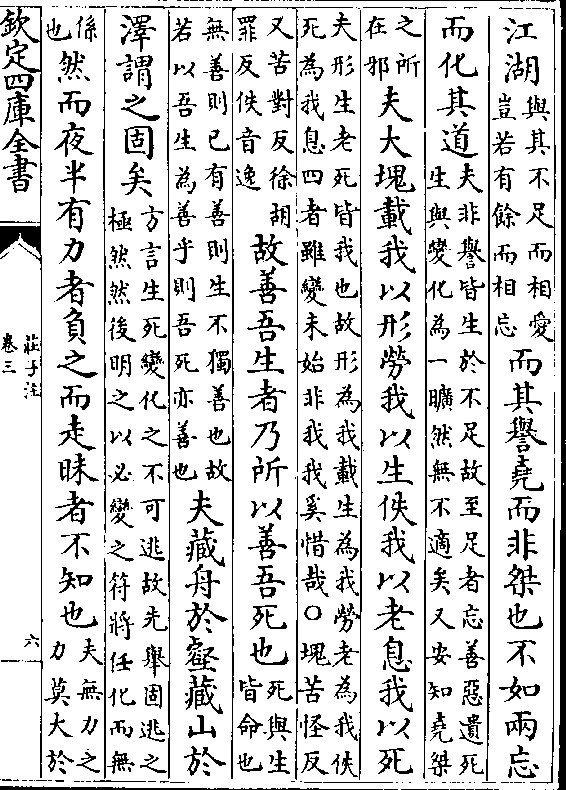 江湖與其不足而相愛豈若有餘而相忘而其譽堯而非桀也不如兩忘
而化其道夫非譽皆生於不足故至足者忘善惡遺死生與變化為一曠然無不適矣又安知堯桀
之所在邪夫大塊載我以形勞我以生佚我以老息我以死
夫形生老死皆我也故形為我載生為我勞老為我佚死為我息四者雖變未始非我我奚惜哉○塊苦怪反
又苦對反徐胡罪反佚音逸故善吾生者乃所以善吾死也死與生皆命也
無善則已有善則生不獨善也故若以吾生為善乎則吾死亦善也夫藏舟於壑藏山於
澤謂之固矣方言生死變化之不可逃故先舉固逃之極然然後明之以必變之符將任化而無
係也然而夜半有力者負之而走昧者不知也夫無力之力莫大於
欽定四庫全書
莊子注
卷三
六